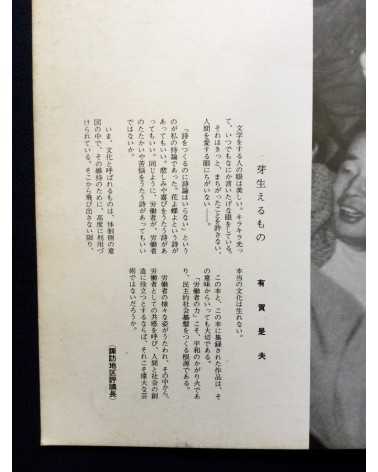 芽生えるもの
有賀是夫
文学をする人の眼は美しい。キラキラ光っ
て、いつでもなにか言いたげな眼をしている。
それはきっと、まちがったことを許さない、
人間を愛する眼にちがいない――。
「詩をつくるのに詩論はいらない」という
のが私の持論であった。花よ蝶よという詩が
あってもいい。悲しみや喜びをうたう詩があ
ってもいい。同じように、労働者が、労働者
のたたかいや苦悩をうたう詩があってもいい
ではないか。
いま、文化と呼ばれるものは、体制側の意
図の中で、その維持のために、高度に利用づ
けられている。そこから飛び出さない限り、
本当の文化は生れない。
この本と、この本に集録された作品は、そ
の意味からいっても大切である。
「労働者の力」こそ、平和のかがり火であ
り、民主的社会基盤をつくる根源である。
労働者の様々な姿がうたわれ、その中から、
労働者としての共感を呼び、人間と社会の創
造に役立つとするならば、それこそ偉大な芸
術ではないだろうか。
(諏訪地区評議長)